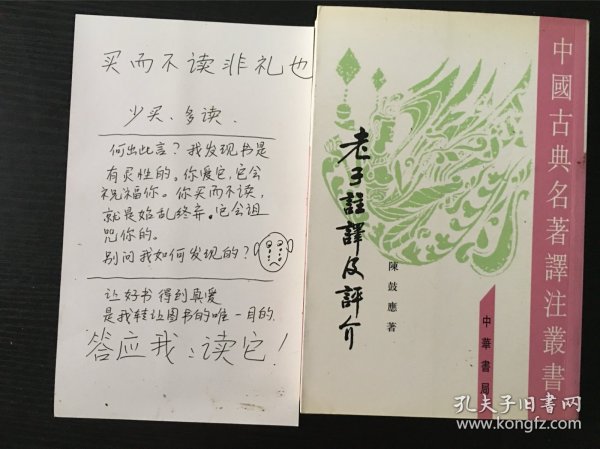 买而不读非礼也
少买、多读、
何出此言？我发现书是
有灵性的。你爱它，它会
祝福你。你买而不读，
就是始乱终弃。它会诅
咒你的。
别问我如何发现的？
让好书得到真爱
是我转让图书的唯一目的.
答应我：读它！
中國古典名著譯注叢書
老子註譯及評介
陳鼓應著
中華書局
孔夫子旧书网
www.kongfz.com